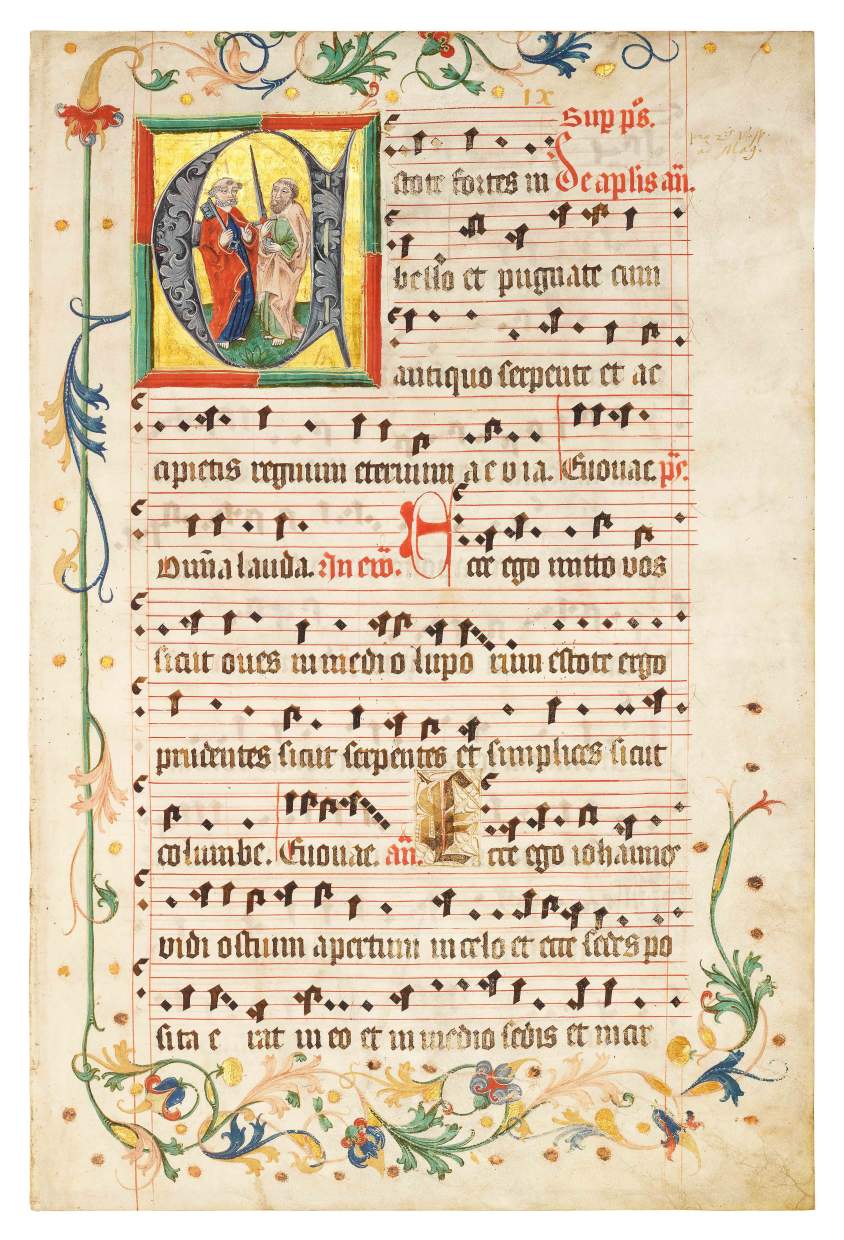 IX
Sup ps.
Estote fortes in De aplis an.
bello et pugnate cum
antiquo serpente et ac
cipietis regnum eternum aevia. Euouae. ps.
Dnm a lauda. In ew. Ecce ego mitto vos
sicut oues in medio lupo rum estote ergo
prudentes sicut serpentes et simplices sicut
columbe. Euouae. an. Ecce ego iohannes
vidi ostium apertum in celo et ecce sedes po
sita e rat in eo et in medio sedis et in cir